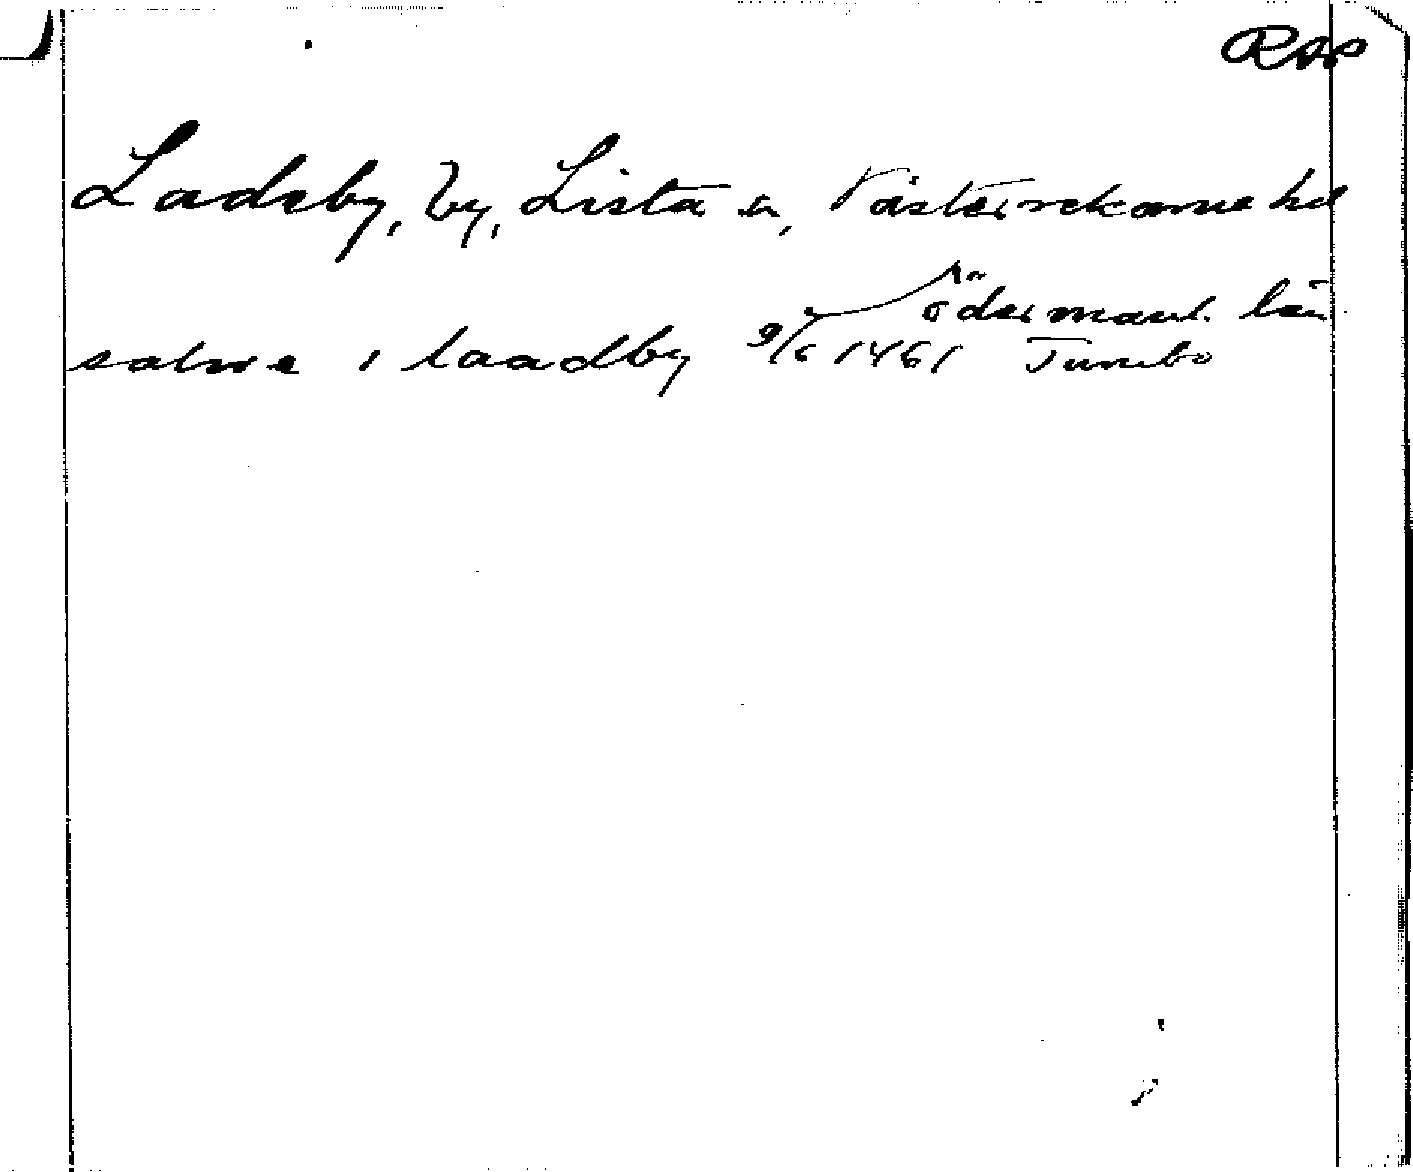 Rap
Ladeby, by, Lista sn, Västerrekarne hd
Södermanl. län
salwe i laadby 9/6 1461 Tumbo